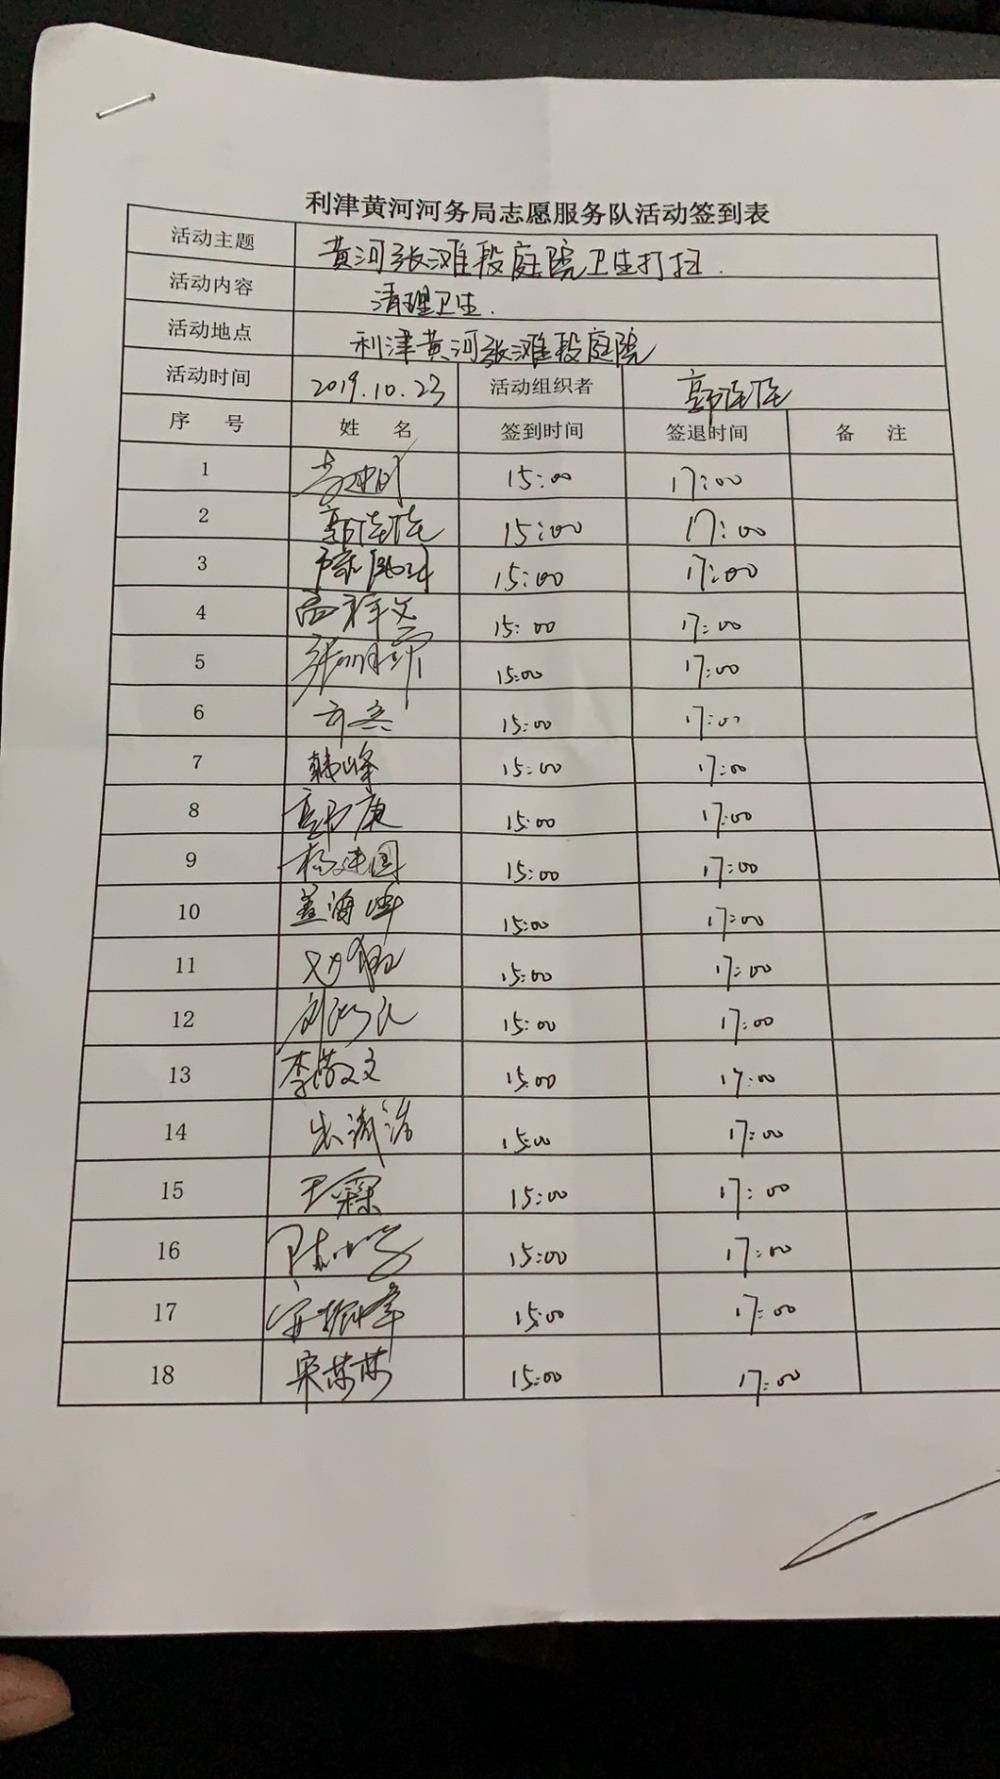 利津黄河河务局志愿服务队活动签到表
活动主题 黄河张滩段庭院卫生打扫.
活动内容 清理卫生.
活动地点 利津黄河张滩段庭院
活动时间 2019.10.23 活动组织者 郭佳佳
序 号 姓 名 签到时间 签退时间 备 注
1 15:00 17:00
2 郭佳佳 15:00 17:00
3 15:00 17:00
4 高祥文 15:00 17:00
5 15:00 17:00
6 15:00 17:00
7 韩峰 15:00 17:00
8 15:00 17:00
9 杨建国 15:00 17:00
10 盖海峰 15:00 17:00
11 15:00 17:00
12 15:00 17:00
13 李敬文 15:00 17:00
14 15:00 17:00
15 王霖 15:00 17:00
16 15:00 17:00
17 15:00 17:00
18 宋莎莎 15:00 17:00